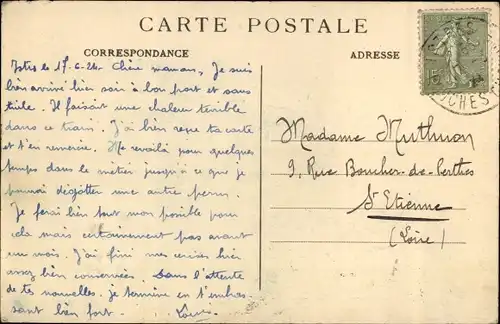 CARTE POSTALE
CORRESPONDANCE
ADRESSE
Istres le 17-6-24. Chère maman, Je suis
bien arrivé hier soir à bon port et sans
tuile. Il faisait une chaleur terrible
dans ce train. J'ai bien reçu ta carte
et t'en remercie. Me revoilà pour quelques
temps dans le métier jusqu'à ce que je
pourrai dégotter une autre perm.
Je ferai bien tout mon possible pour
cela mais certainement pas avant
un mois. J'ai fini mes cerises hier
assez bien conservées. Dans l'attente
de tes nouvelles. je termine en t'embras-
sant bien fort.
Madame Muthuon
9, Rue Boucher-de-Perthes
St Etienne
(Loire)
15